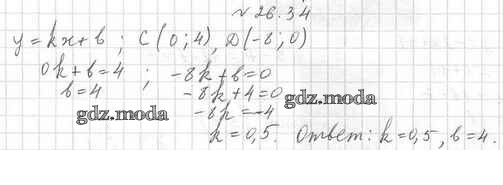 № 26.34
y = kx + b ; C (0 ; 4), D (-8 ; 0)
0k + b = 4 ; -8k + b = 0
b = 4 -8k + 4 = 0 gdz.moda
gdz.moda -8k = -4
k = 0,5. Ответ: k = 0,5, b = 4.